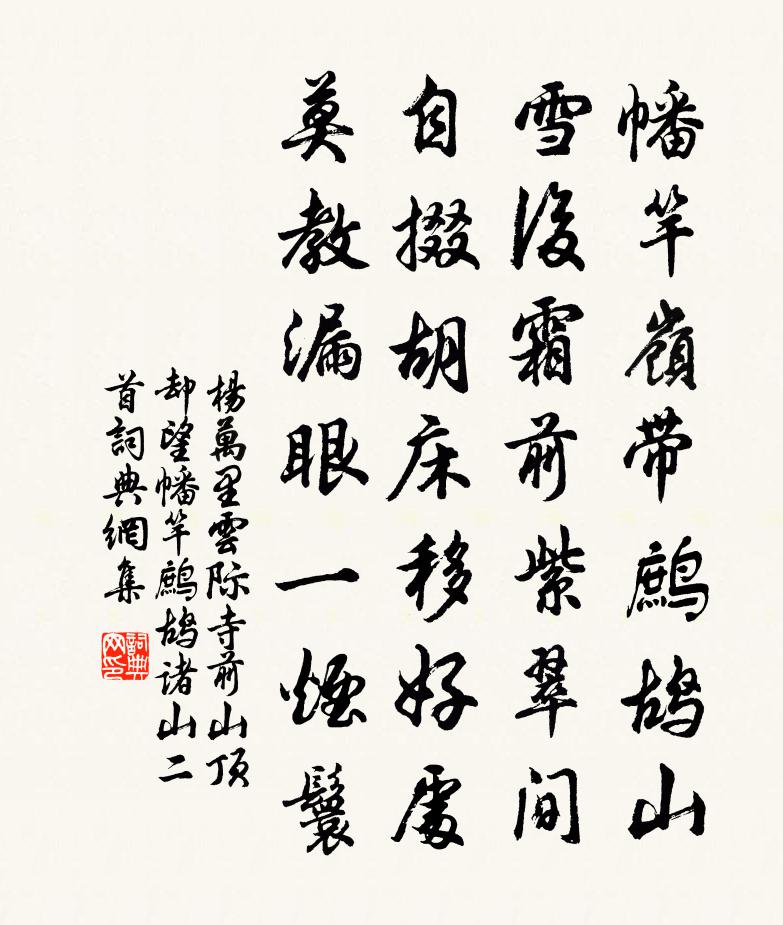 幡竿嶺帶鷓鴣山
雪後霜前紫翠間
自掇胡床移好處
莫教漏眼一煙鬟
楊萬里雲际寺前山頂
却望幡竿鷓鴣諸山二
首詞典網集
詞典网印